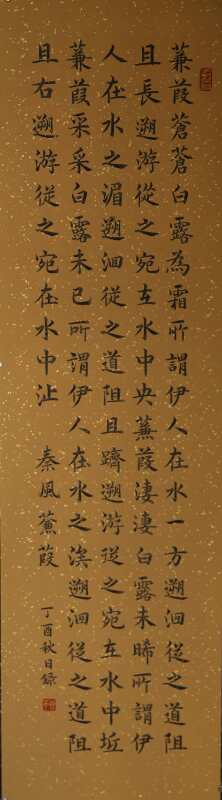 蒹葭蒼蒼白露為霜所謂伊人在水一方遡洄從之道阻
且長遡游從之宛在水中央蒹葭淒淒白露未晞所謂伊
人在水之湄遡洄從之道阻且躋遡游從之宛在水中坻
蒹葭采采白露未已所謂伊人在水之涘遡洄從之道阻
且右遡游從之宛在水中沚 秦風蒹葭 丁酉秋日錄